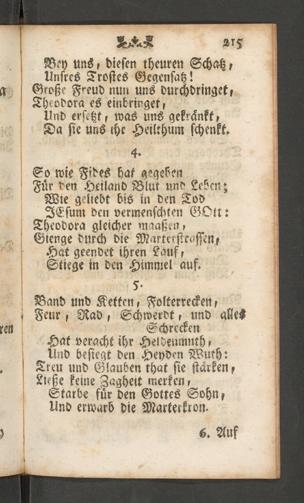 215
Bey uns, diesen theuren Schatz,
Unsres Trostes Gegensatz!
Große Freud nun uns durchdringet,
Theodora es eindringet,
Und ersetzt, was uns gekränkt,
Da sie uns ihr Heilthum schenkt.
4.
So wie Fides hat gegeben
Für den Heiland Blut und Leben;
Wie geliebt bis in den Tod
JEsum den vermenschten GOtt:
Theodora gleicher maaßen,
Gienge durch die Marterstrassen,
Hat geendet ihren Lauf,
Stiege in den Himmel auf.
5.
Band und Ketten, Folterrecken,
Feur, Rad, Schwerdt, und alles
Schrecken
Hat veracht ihr Heldenmuth,
Und besiegt den Heyden Wuth:
Treu und Glauben that sie stärken,
Ließe keine Zagheit merken,
Starbe für den Gottes Sohn,
Und erwarb die Marterkron.
6. Auf